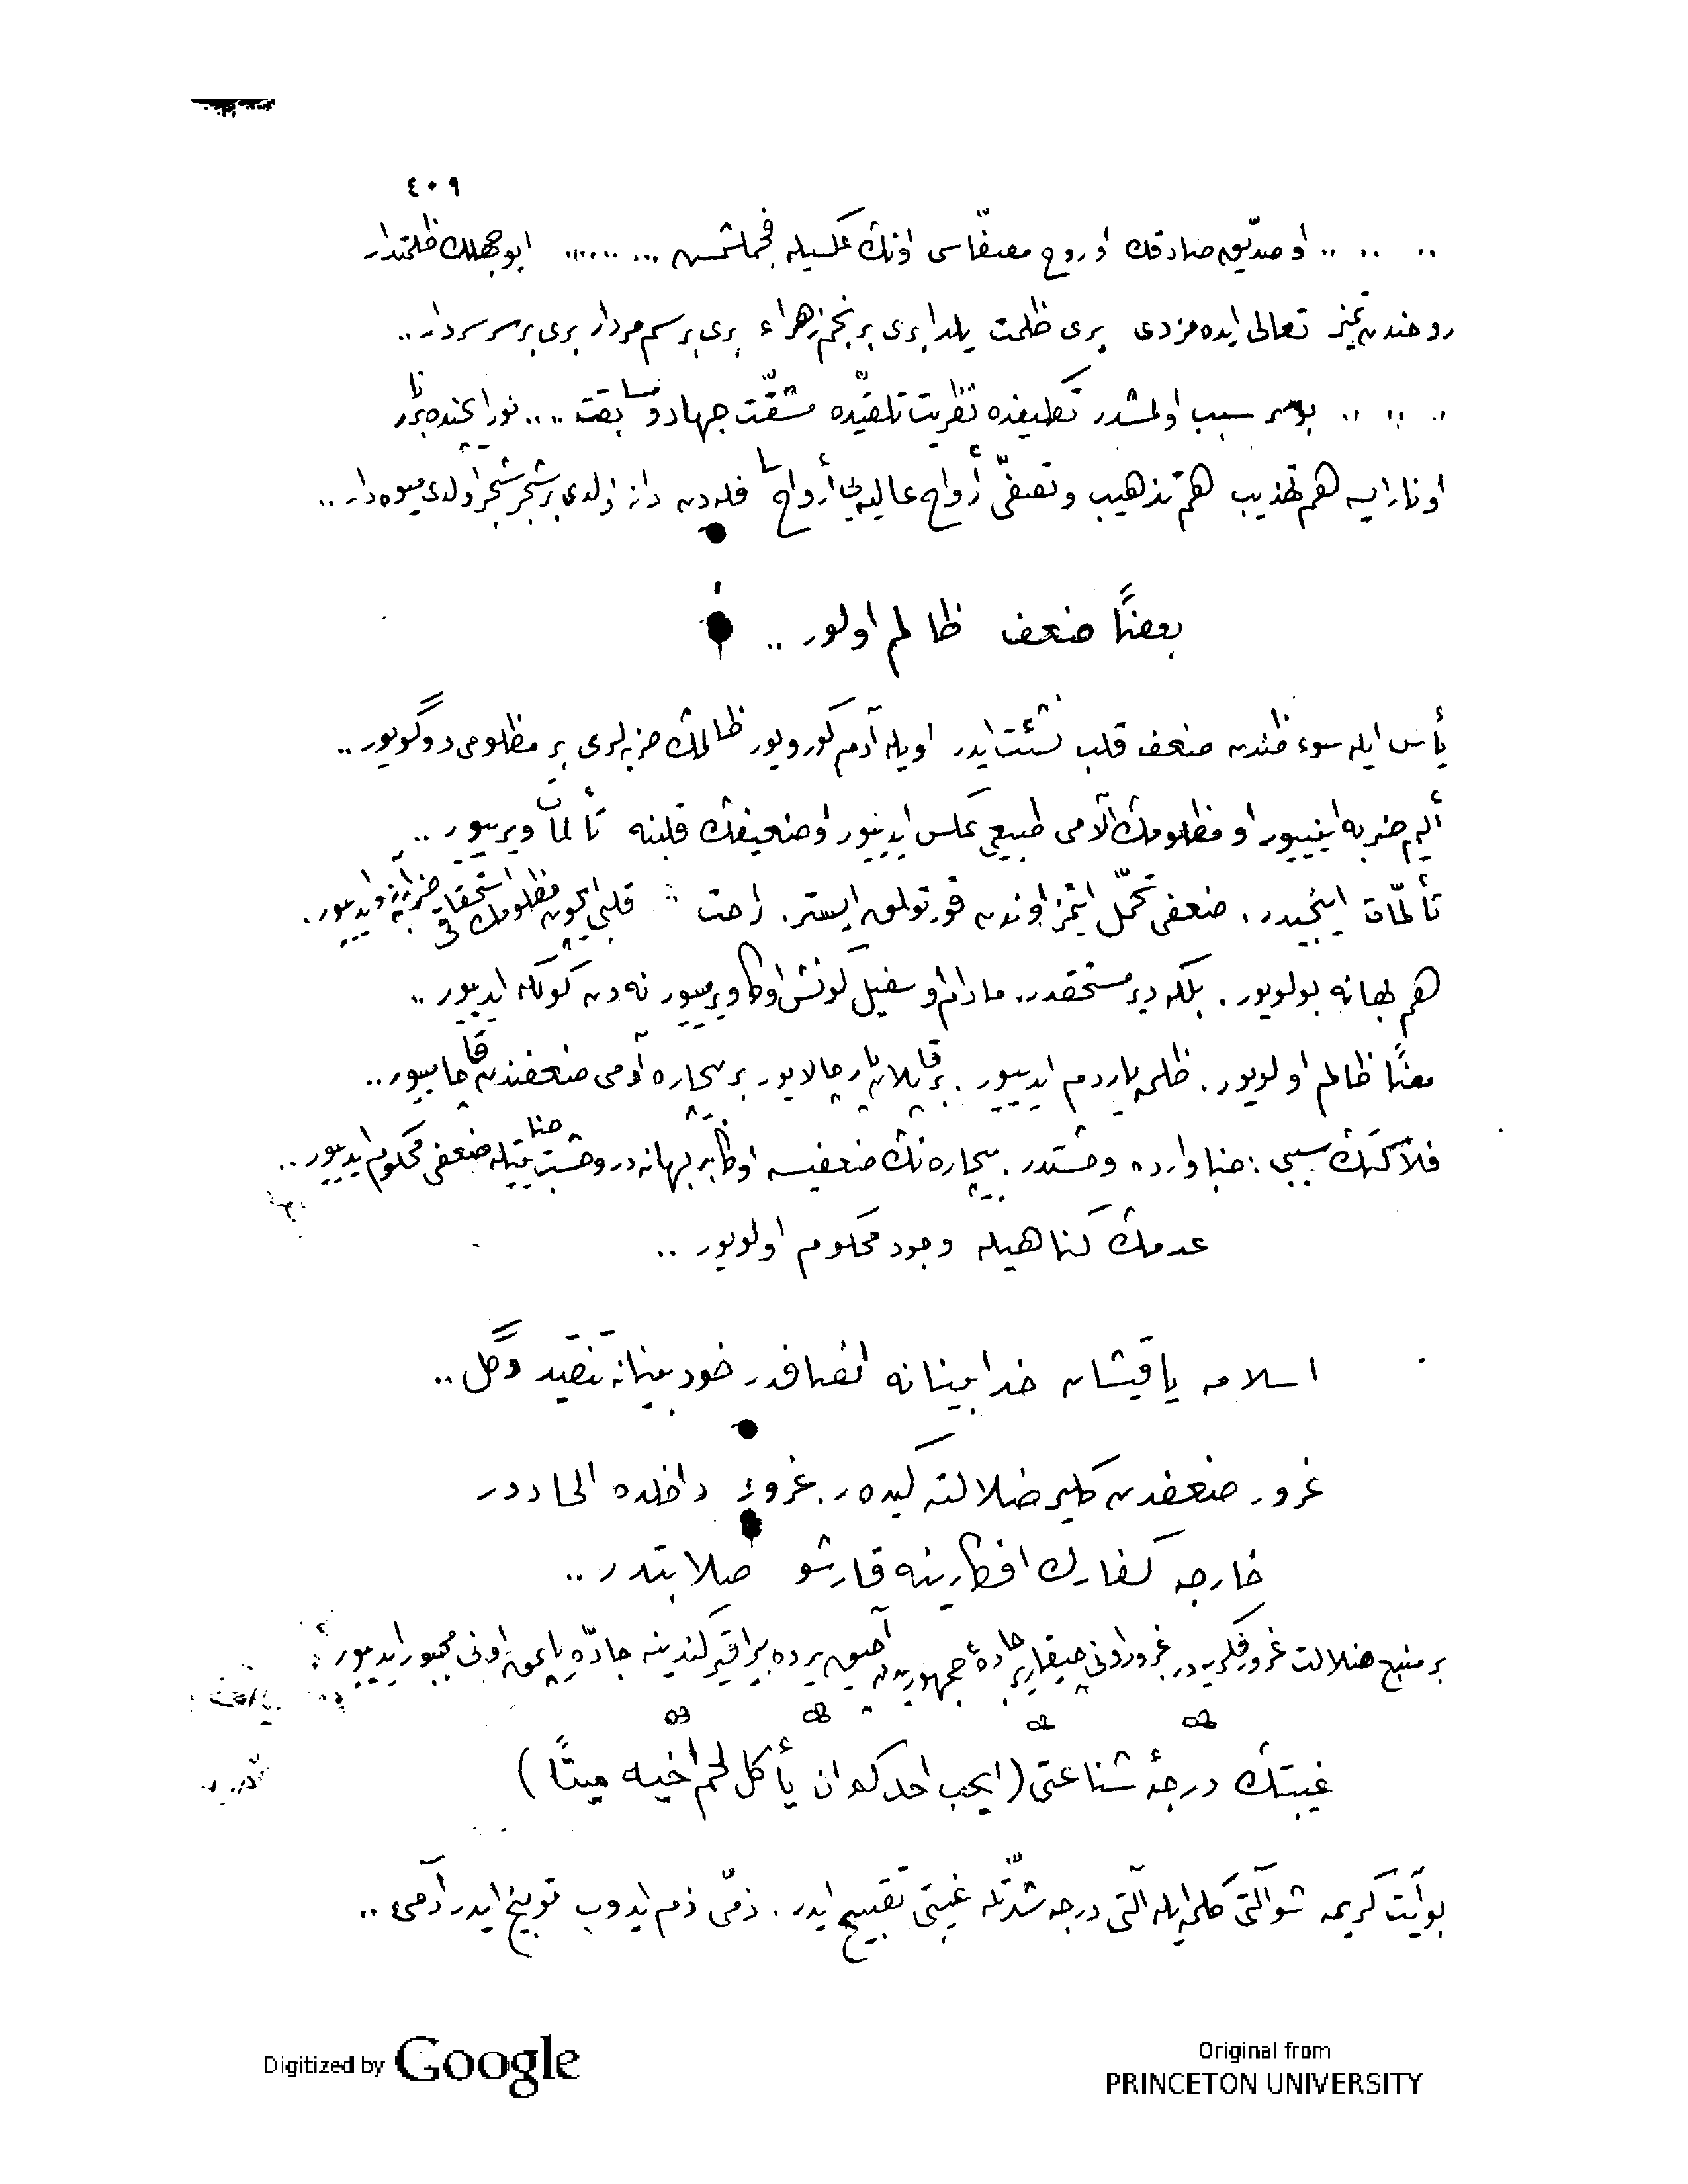 ٤٠٩
او صدّيق صادقك او روح مصفّاسى اونك عكسيله ابو جهلك ظلمتدار
روحندن تميز تعالى ايده مزدى برى ظلمت يلدا برى بر نجم زهراء برى بر سم مردار برى بر سر سردار ..
بو سر سبب اولمشدر تكليفده نظريت تلقيده مشقّت جهاد و مسابقت .. .. نور ايچنده بر نار
او نار ايسه هم تهذيب هم تذهيب و تصفى أرواح عاليه يى أرواح سافله دن دانه اولدى بر شجر شجر اولدى ميوه دار ..
بعضًا ضعف ظالم اولور ..
يأس ايله سوء ظندن ضعف قلب نشئت ايدر اويله آدم كورويور ظالمك ضربه لرى بر مظلومى دوگويور ..
أليم ضربه اينييور او مظلومك آلامى طبيعى عكس ايدييور او ضعيفك قلبنه تألمات ويرييور ..
تألّمات اينجيدر . ضعفى تحمّل ايتمز اوندن قورتولمق ايستر . راحت قلبى ايچون مظلومك استحقاق ضربه نى آرزو ايدييور .
هم بهانه بولويور . بلكه دير مستحقدر . مادام او سفيل ويرمييور نه دن ايدييور ..
معنًا ظالم اولويور . ظلمه ياردم ايدييور . بر قپلان پارچالايور بر بيچاره آدمى ضعفندن قاچامييور ..
فلاكتك سببى : جناوارده وحشتدر . بيچاره نك ضعفيسه اوكا بر بهانه در وحشت جنايتيله ضعفى محكوم ايدييور ..
عدمك كناهيله وجود محكوم اولويور ..
اسلامه ياقيشان خدابينانه انصافدر خودبينانه تنقيد دگل ..
غرور ضعفدن كلير ضلالته كيدر . غرور داخلده الحاددر
خارجه كفارك افكارينه قارشو صلابتدر ..
بر منبع ضلالت غرور فكريدر غرور اونى چيقارير جادۀ جمهوريدن آچيق يرده بيراقير كندينه جادّه ياپمق اونى مجبور ايدييور
غيبتك درجۀ شناعتى ( ايحب احدكم ان يأكل لحم أخيه ميتًا )
بو آيت كريمه شو آلتى كلمه ايله آلتى درجه شدّتله غيبتى تقبيح ايدر . ذمّى ذم ايدوب توبيخ ايدر آدمى ..
Digitized by Google
Original from
PRINCETON UNIVERSITY